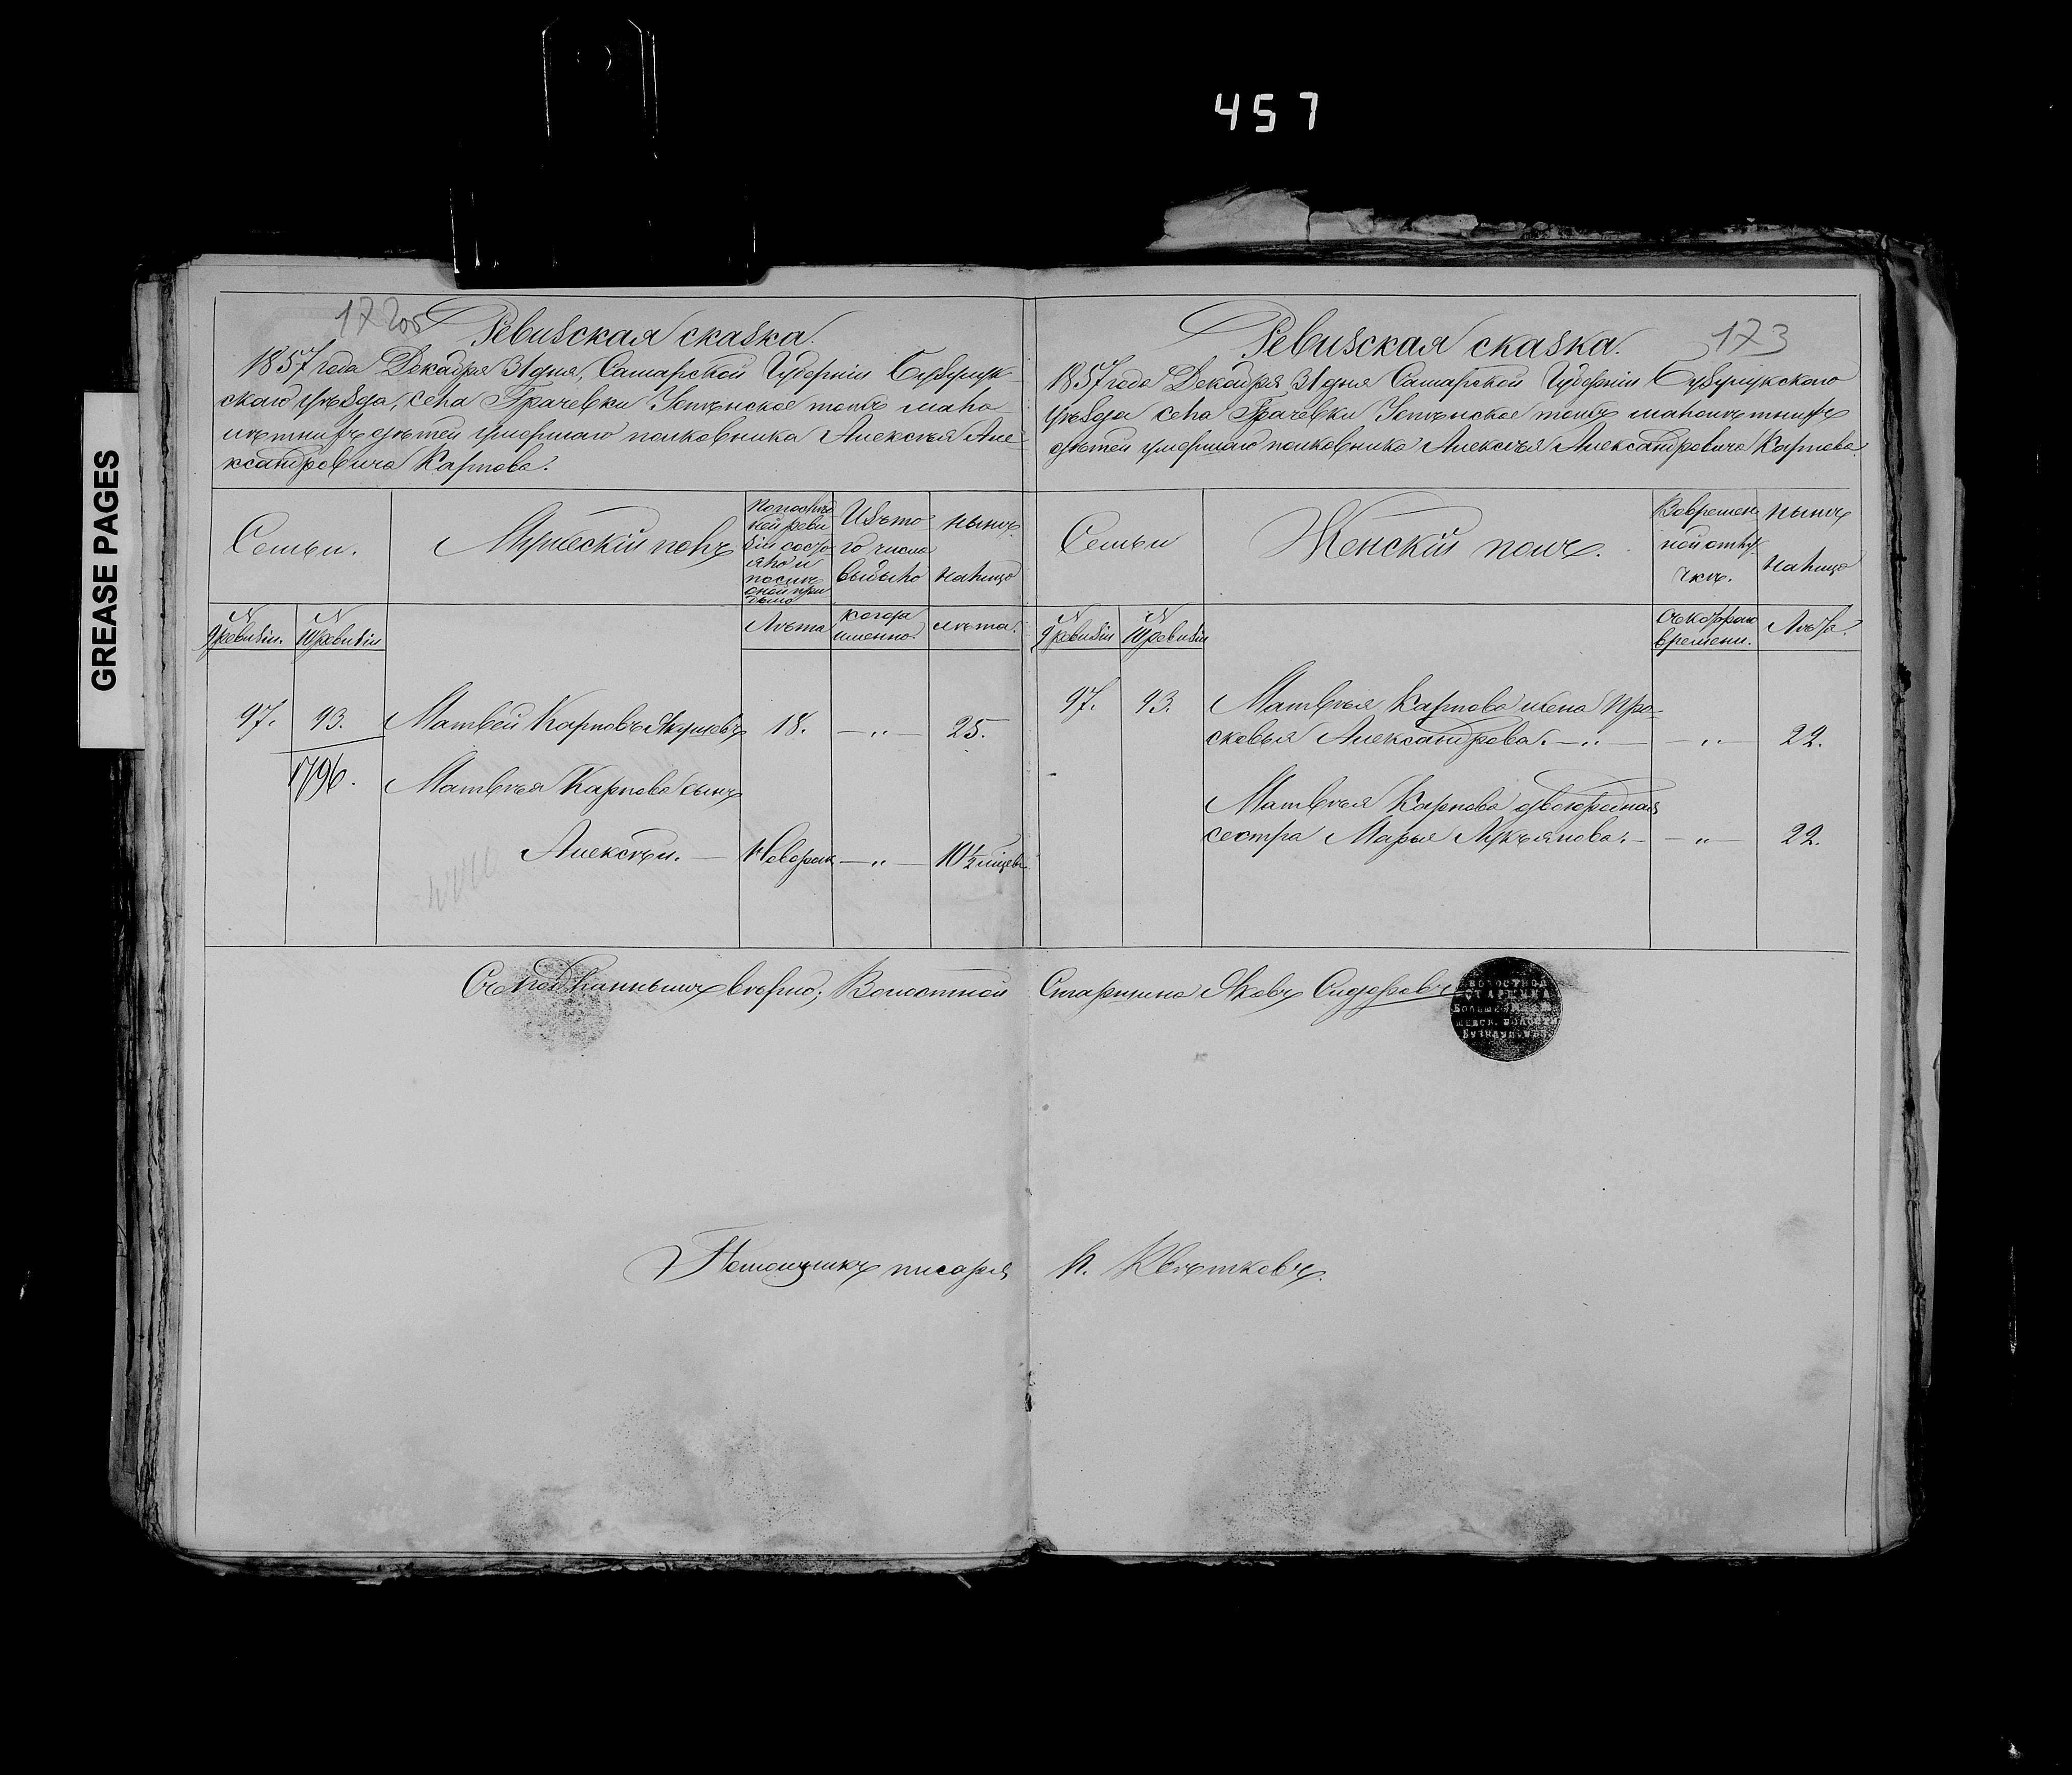 457
GREASE PAGES
172об
Ревизская сказка.
1857 года Декабря 31 дня, Самарской Губерніи Бузулук-
скаго уѣзда, села Грачевки Япѣнское тожъ мало-
лѣтнихъ дѣтей умершаго полковника Алексѣя Але-
ксандровича Карпова.
Семьи.
Мужескій полъ
По послѣд
ней реви
зіи состо
яло и
послѣ
оной при
было
Изъ то
го числа
выбыло
нынѣ
налицо
N
9 ревизіи.
N
10 ревизіи
Лѣта
когда
именно.
лѣта.
97. 93. Матвей Карповъ Якушовъ 18. — „ — 25.
1796. Матвѣя Карпова сынъ
Алексѣй. — Новорож — „ — 10 1/2 мѣсяцевъ
173
Ревизская сказка.
1857 года Декабря 31 дня Самарской Губерніи Бузулукскаго
уѣзда села Грачевки Япѣнское тожъ малолѣтнихъ
дѣтей умершаго полковника Алексѣя Александровича Карпова.
Семьи
Женскій полъ.
Во времен
ной отлу
чкѣ.
нынѣ
налицо
N
9 ревизіи
N
10 ревизіи
Съ котораго
времени.
Лѣта.
97. 93. Матвѣя Карпова жена Про-
сковья Александрова. — „ — — „ — 22.
Матвѣя Карпова двоюродная
сестра Марья Лукьянова. — — „ — 22.
Съ подлиннымъ вѣрно; Волостной Старшина Яковъ Сидоровъ
ВОЛОСТНОЙ
СТАРШИНА
Помощникъ писаря П. Квѣтковъ.